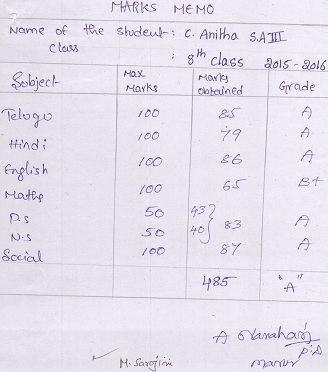 MARKS MEMO
Name of the student: C. Anitha S.A III
Class : 8th class 2015-2016
Subject Max Marks Marks obtained Grade
Telugu 100 85 A
Hindi 100 79 A
English 100 86 A
Maths 100 65 B+
P.S 50 43
N.S 50 40 } 83 A
Social 100 87 A
485 "A"
A Narahari
P.A
M. Sarojini